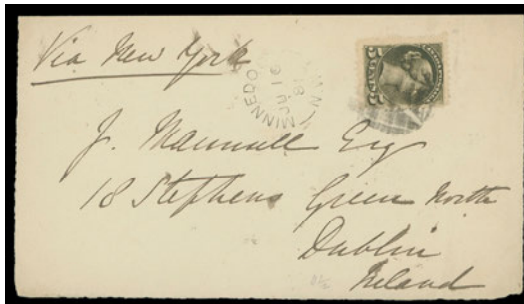 Via New York
MINNEDO
JU 16
81
J. Maunsell Esq
18 Stephens Green North
Dublin
Ireland